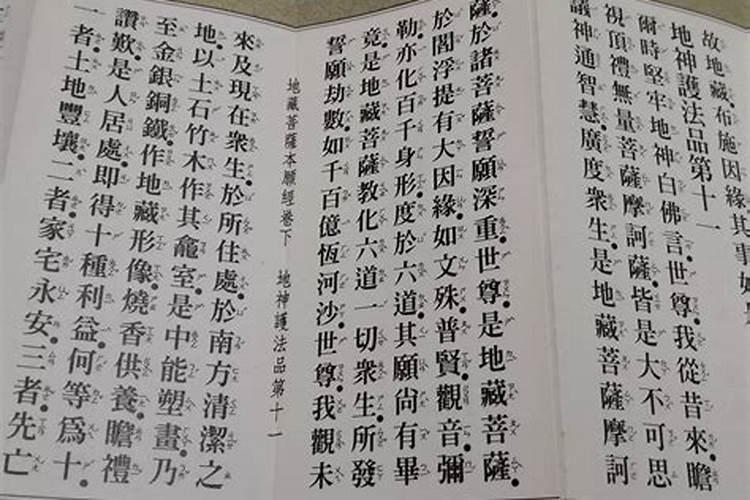 故地藏布施因緣其事如是
地神護法品第十一
爾時堅牢地神白佛言世尊我從昔來瞻
視頂禮無量菩薩摩訶薩皆是大不可思
議神通智慧廣度眾生是地藏菩薩摩訶
薩於諸菩薩誓願深重世尊是地藏菩薩
於閻浮提有大因緣如文殊普賢觀音彌
勒亦化百千身形度於六道其願尚有畢
竟是地藏菩薩教化六道一切眾生所發
誓願劫數如千百億恆河沙世尊我觀未
地藏菩薩本願經卷下 地神護法品第十一
來及現在眾生於所住處於南方清潔之
地以土石竹木作其龕室是中能塑畫乃
至金銀銅鐵作地藏形像燒香供養瞻禮
讚歎是人居處即得十種利益何等為十
一者土地豐壤二者家宅永安三者先亡